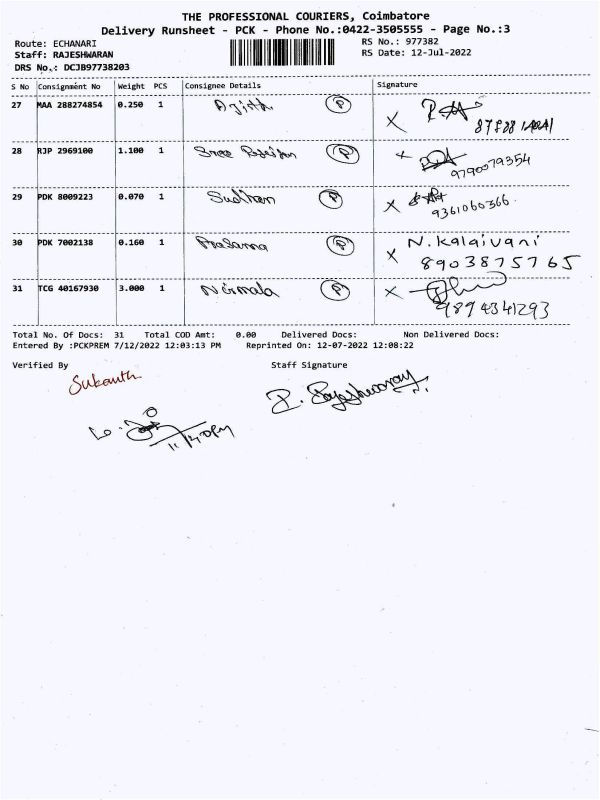 THE PROFESSIONAL COURIERS, Coimbatore
Delivery Runsheet - PCK - Phone No.:0422-3505555 - Page No.:3
Route: ECHANARI RS No.: 977382
Staff: RAJESHWARAN RS Date: 12-Jul-2022
DRS No.: DCJB97738203
S No Consignment No Weight PCS Consignee Details Signature
27 MAA 288274854 0.250 1 Ajith P X
28 RJP 2969100 1.100 1 Sree P X
9790079354
29 PDK 8009223 0.070 1 Sudhan P X
9361060366
30 PDK 7002138 0.160 1 Prasanna P X N. Kalaivani
8903875765
31 TCG 40167930 3.000 1 Nirmala P X
9894341293
Total No. Of Docs: 31 Total COD Amt: 0.00 Delivered Docs: Non Delivered Docs:
Entered By :PCKPREM 7/12/2022 12:03:13 PM Reprinted On: 12-07-2022 12:08:22
Verified By Staff Signature
Sukanth
P. Rajeshwaran